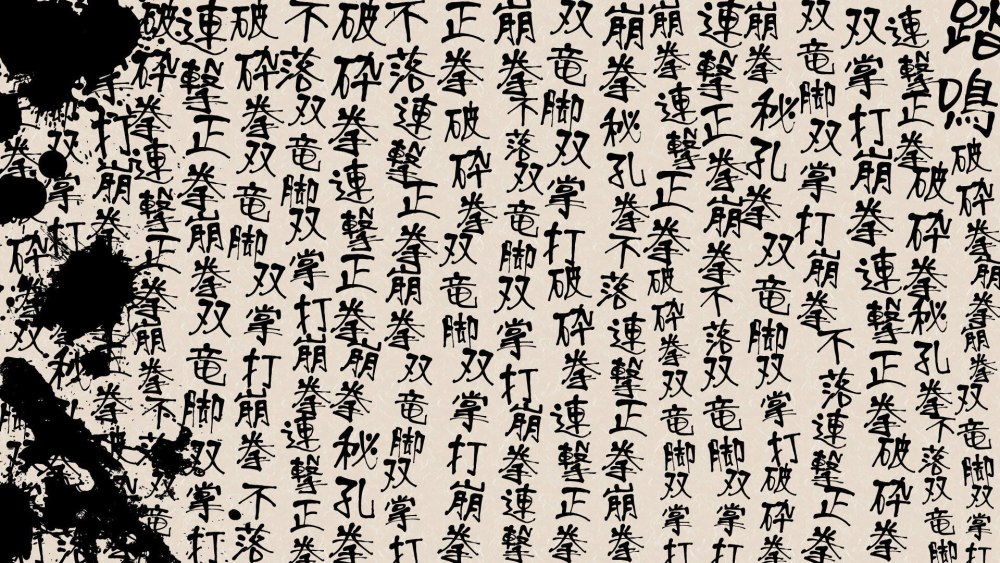 踏鳴破砕拳崩拳崩拳双竜脚双掌打
連撃正拳破砕拳秘孔拳不落双竜脚
双掌打崩拳連撃正拳破砕拳
双竜脚双掌打崩拳不落連撃正拳
崩拳秘孔拳双竜脚双掌打破砕拳
連撃正拳崩拳不落双竜脚双掌打
崩拳連撃正拳破砕拳双竜脚双掌打
崩拳秘孔拳不落連撃正拳崩拳
双竜脚双掌打破砕拳連撃正拳
崩拳不落双竜脚双掌打崩拳連撃
正拳破砕拳双竜脚双掌打崩拳
不落連撃正拳崩拳双竜脚双掌打
破砕拳連撃正拳崩拳秘孔拳
不落双竜脚双掌打崩拳連撃正拳
破砕拳双竜脚双掌打崩拳不落
連撃正拳崩拳双竜脚双掌打
破砕拳連撃正拳崩拳不落竜
掌打崩拳拳
双掌打秘
拳砕拳双